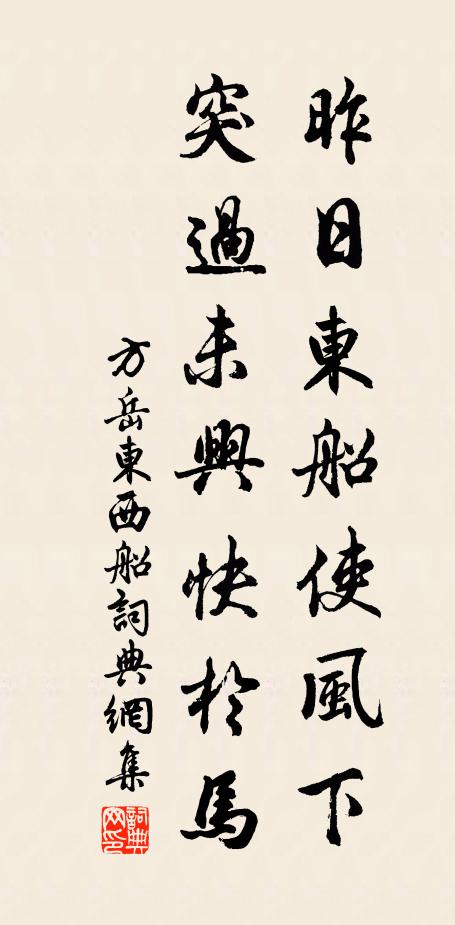 昨日東船使風下
突過未興快於馬
方岳東西船詞典網集
詞典
网印